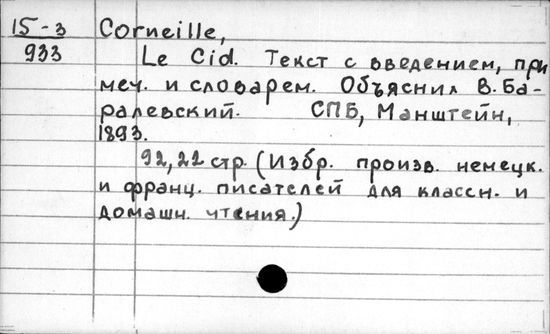 15-3
933
Corneille,
Le Cid. Текст с введением, при
меч. и словарем. Объяснил В. Ба-
ралевский. СПБ, Манштейн,
1893.
92, 22 стр. (Избр. произв. немецк.
и франц. писателей для классн. и
домашн. чтения.)